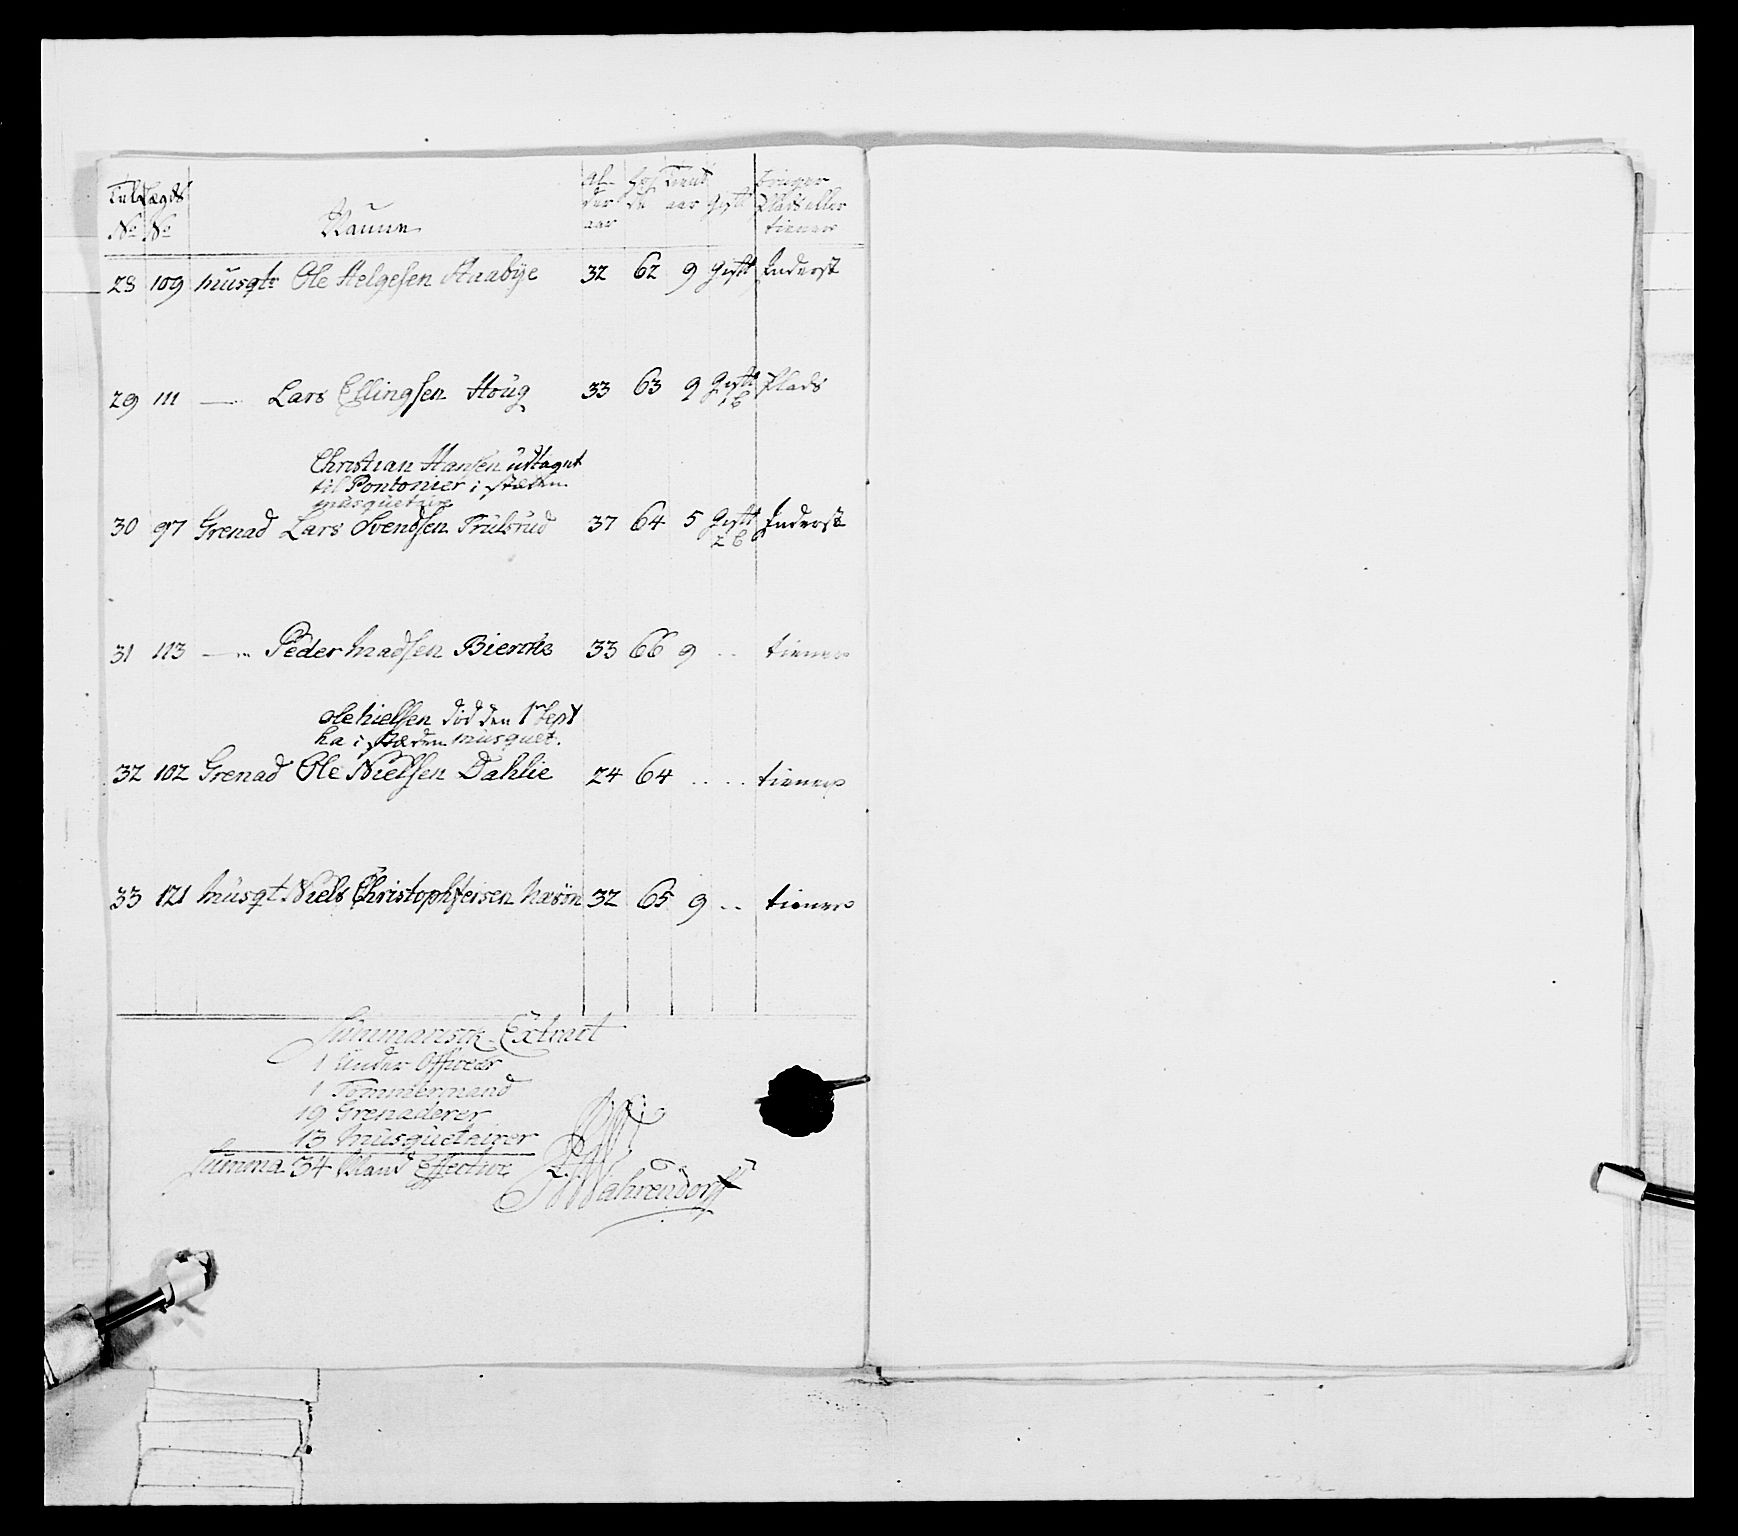 Tal Lægds Al- Hø Tient Bruger
der de aar Gift Plads eller
No No Naune aar tiener
28 109 Musqt Ole Helgesen Haabye 32 62 9 Gift Inderst
29 111 — Lars Ellingsen Houg 33 63 9 Gift Plads
1 B
Christian Hansen udtaget
til Pontonier i stæden
musqueteir
30 97 Grenad Lars Svendsen Trulsrud 37 64 5 Gift Inderst
2 B
31 113 — Peder Madsen Biercke 33 66 9 .. tiener
Ole Nielsen død den 1 Sept
ha i stæden musquet.
32 102 Grenad Ole Nielsen Dahlie 24 64 .. .. tiener
33 121 Musqt Niels Christophersen Næsøn 32 65 9 .. tiener
Summarisk Extract
1 Under Officeer
1 Tømmermand
19 Grenaderer
13 Musqueterer
Summa 34 Mand Effective
Wahrendorff